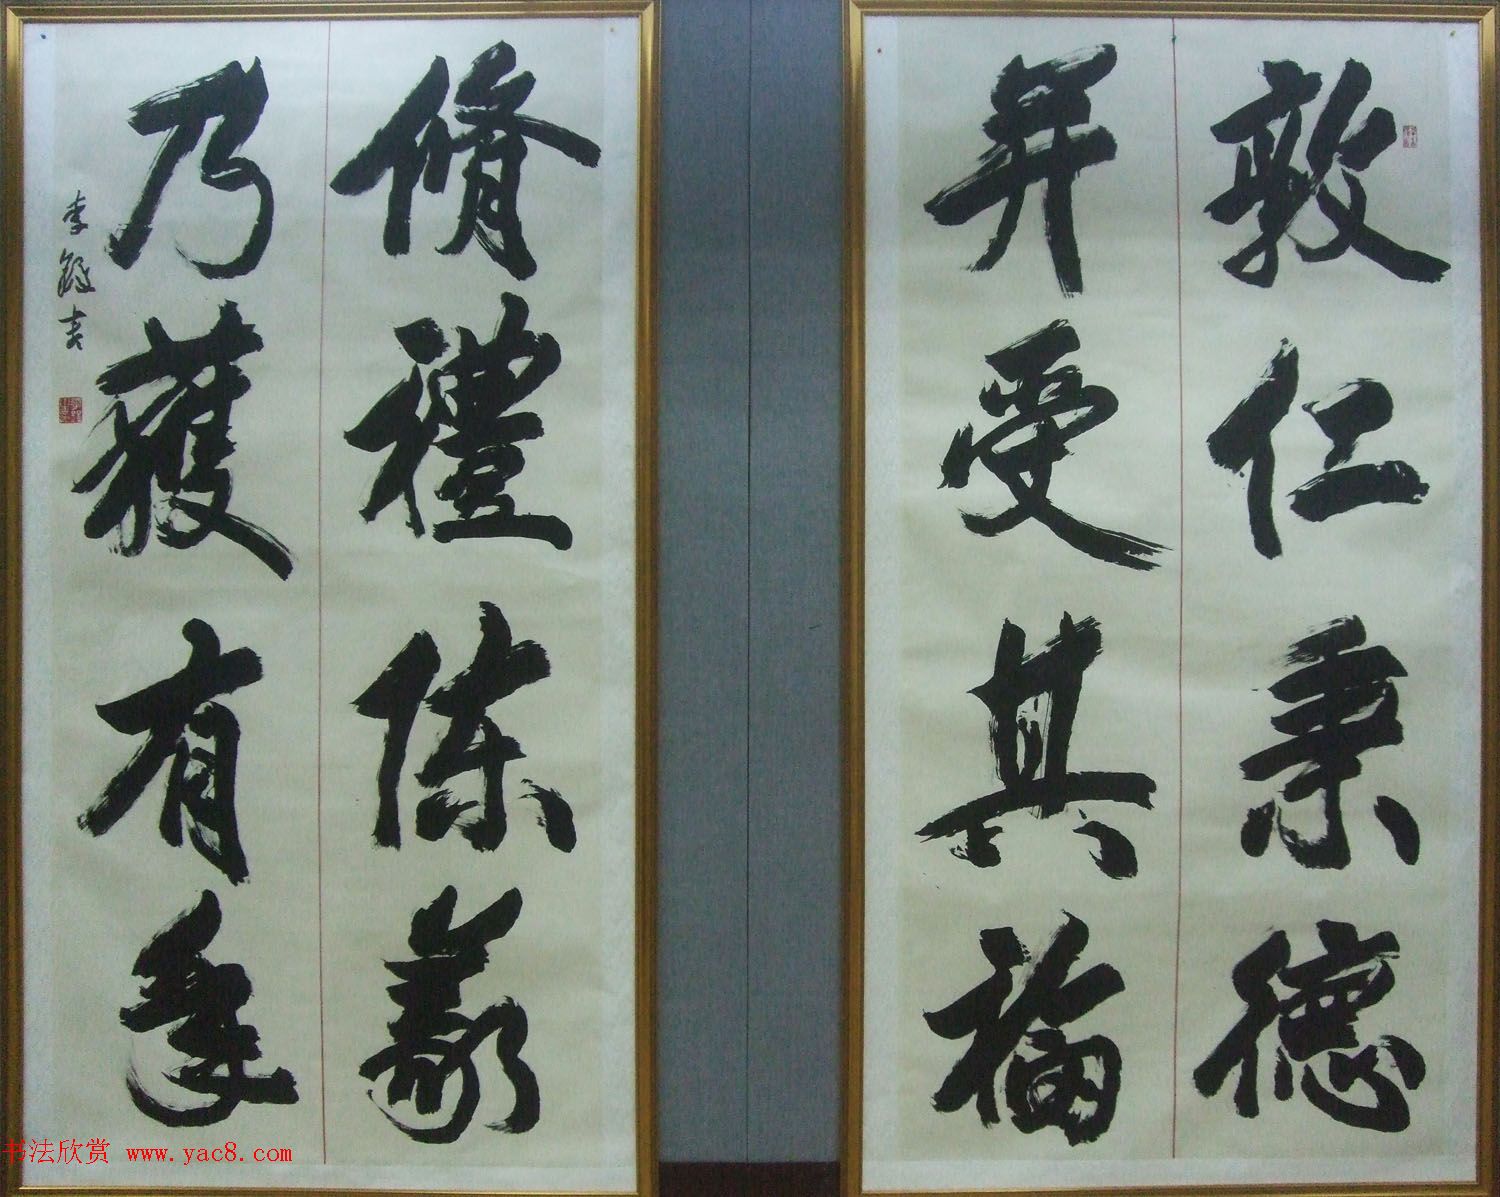 敦仁秉德
并受其福
脩禮陳義
乃獲有年
李鐸书
书法欣赏 www.yac8.com